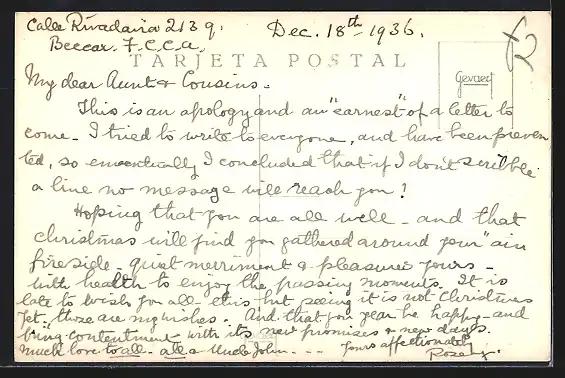 Calle Rivadavia 2139. Dec. 18th - 1936.
Beccar. F.C.C.A.
TARJETA POSTAL
Gevaert
My dear Aunt & Cousins -
This is an apology and an "earnest" of a letter to
come - I tried to write to everyone, and have been preven
ted, so eventually I concluded that if I don't scribble
a line no message will reach you!
Hoping that you are all well - and that
christmas will find you gathered around your "ain
fireside - quiet merriment & pleasures yours -
with health to enjoy the passing moments. It is
late to wish you all this but seeing it is not Christmas
yet - these are my wishes. And that you year be happy - and
bring contentment with its new promises & new days.
Much love to all - all & Uncle John. - - - Yours affectionately